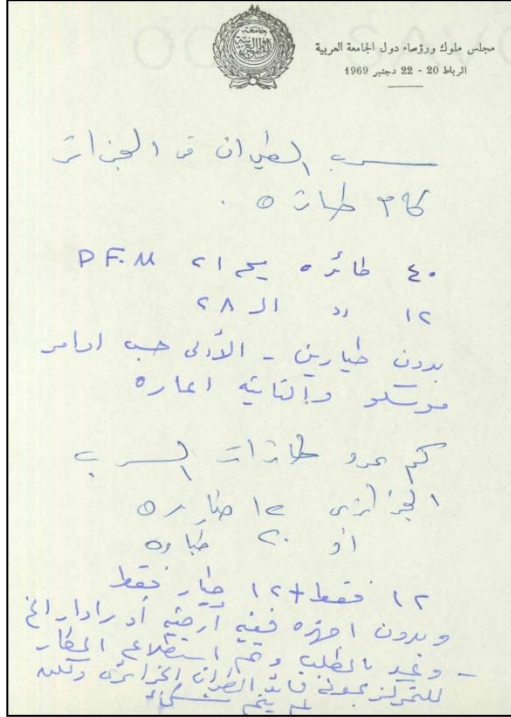 مجلس ملوك ورؤساء دول الجامعة العربية
الرباط 20 - 22 دجنبر 1969
سرب الطيران فى الجزائر
كام طائرة .
٤٠ طائره يج ٢١ P F. M
١٢ " الـ ٢٨
بدون طيارين - الأولى حسب اوامر
موسكو والثانيه اعاره
كم عدد طائرات السرب
الجزائرى ١٢ طياره
او ٢٠ طياره
١٢ فقط + ١٢ طيار فقط
وبدون اجهزه فنيه أرضيه أو رادار الخ
- وعد بالطلب وتم استطلاع المطار
للتمركز بمعرفة قائد الطيران الجزائرى ولكن
لم يتم شىء